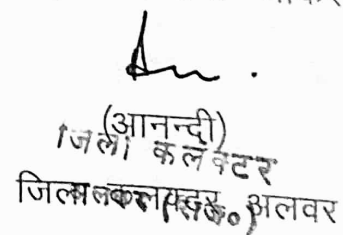 (आनन्दी)
जिला कलक्टर
जिला कलक्टर, अलवर